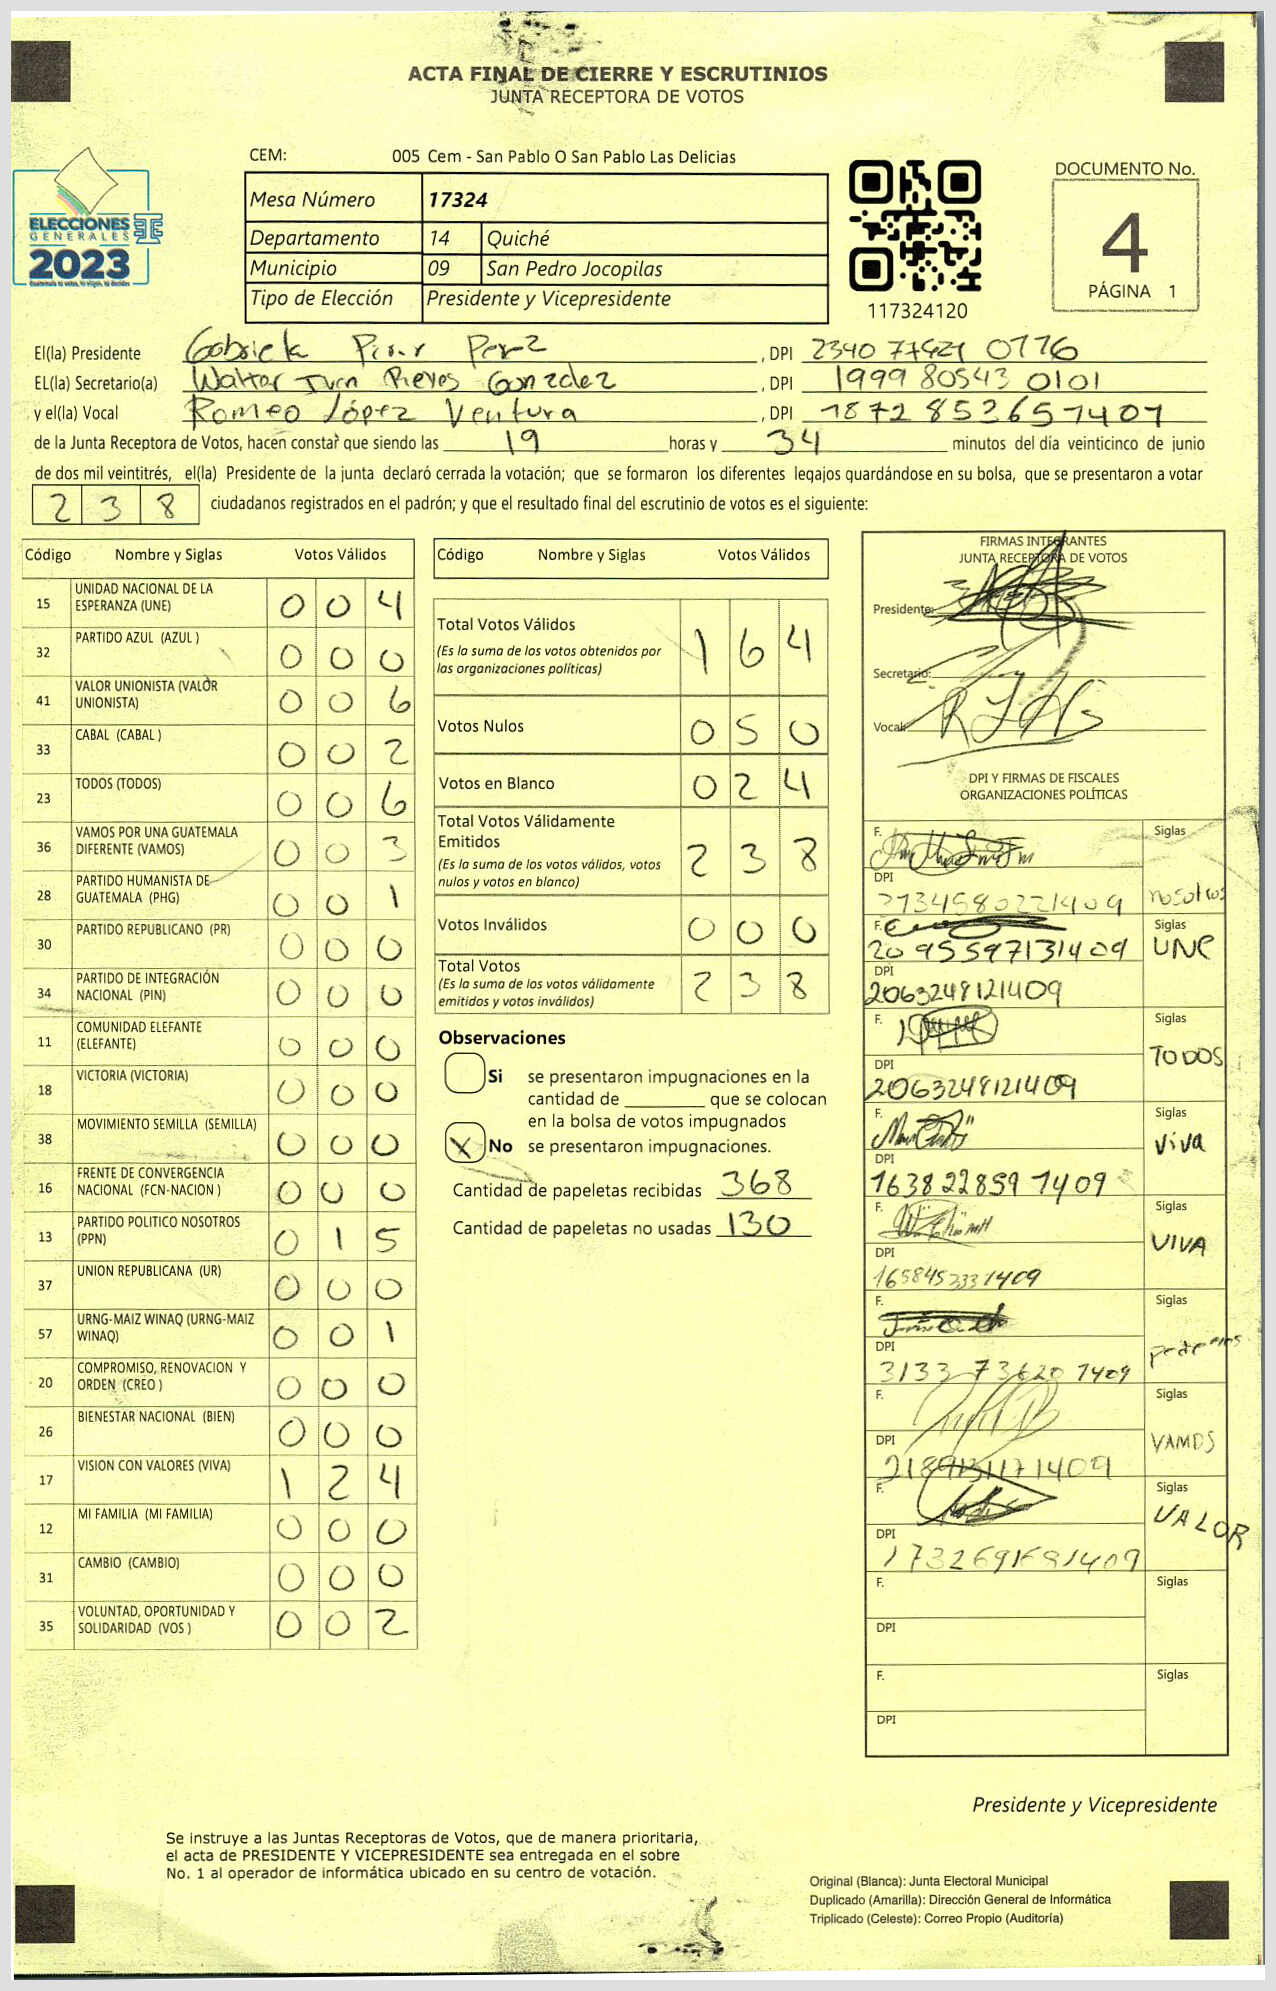 ACTA FINAL DE CIERRE Y ESCRUTINIOS
JUNTA RECEPTORA DE VOTOS
ELECCIONES
GENERALES
2023
CEM: 005 Cem - San Pablo O San Pablo Las Delicias
Mesa Número 17324
Departamento 14 Quiché
Municipio 09 San Pedro Jocopilas
Tipo de Elección Presidente y Vicepresidente
117324120
DOCUMENTO No.
4
PÁGINA 1
El(la) Presidente Gabriela , DPI
EL(la) Secretario(a) Walter Gonzalez , DPI 1999 80543 0101
y el(la) Vocal Romeo López Ventura , DPI 1872 852651407
de la Junta Receptora de Votos, hacen constar que siendo las 19 horas y 34 minutos del día veinticinco de junio
de dos mil veintitrés, el(la) Presidente de la junta declaró cerrada la votación; que se formaron los diferentes legajos guardándose en su bolsa, que se presentaron a votar
238 ciudadanos registrados en el padrón; y que el resultado final del escrutinio de votos es el siguiente:
Código Nombre y Siglas Votos Válidos
15 UNIDAD NACIONAL DE LA ESPERANZA (UNE) 0 0 4
32 PARTIDO AZUL (AZUL ) 0 0 0
41 VALOR UNIONISTA (VALOR UNIONISTA) 0 0 6
33 CABAL (CABAL ) 0 0 2
23 TODOS (TODOS) 0 0 6
36 VAMOS POR UNA GUATEMALA DIFERENTE (VAMOS) 0 0 3
28 PARTIDO HUMANISTA DE GUATEMALA (PHG) 0 0 1
30 PARTIDO REPUBLICANO (PR) 0 0 0
34 PARTIDO DE INTEGRACIÓN NACIONAL (PIN) 0 0 0
11 COMUNIDAD ELEFANTE (ELEFANTE) 0 0 0
18 VICTORIA (VICTORIA) 0 0 0
38 MOVIMIENTO SEMILLA (SEMILLA) 0 0 0
16 FRENTE DE CONVERGENCIA NACIONAL (FCN-NACION ) 0 0 0
13 PARTIDO POLITICO NOSOTROS (PPN) 0 1 5
37 UNION REPUBLICANA (UR) 0 0 0
57 URNG-MAIZ WINAQ (URNG-MAIZ WINAQ) 0 0 1
20 COMPROMISO, RENOVACION Y ORDEN (CREO ) 0 0 0
26 BIENESTAR NACIONAL (BIEN) 0 0 0
17 VISION CON VALORES (VIVA) 1 2 4
12 MI FAMILIA (MI FAMILIA) 0 0 0
31 CAMBIO (CAMBIO) 0 0 0
35 VOLUNTAD, OPORTUNIDAD Y SOLIDARIDAD (VOS ) 0 0 2
Código Nombre y Siglas Votos Válidos
Total Votos Válidos 1 6 4
(Es la suma de los votos obtenidos por
las organizaciones políticas)
Votos Nulos 0 5 0
Votos en Blanco 0 2 4
Total Votos Válidamente
Emitidos 2 3 8
(Es la suma de los votos válidos, votos
nulos y votos en blanco)
Votos Inválidos 0 0 0
Total Votos 2 3 8
(Es la suma de los votos válidamente
emitidos y votos inválidos)
Observaciones
Si se presentaron impugnaciones en la
cantidad de ________ que se colocan
en la bolsa de votos impugnados
X No se presentaron impugnaciones.
Cantidad de papeletas recibidas 368
Cantidad de papeletas no usadas 130
FIRMAS INTEGRANTES
JUNTA RECEPTORA DE VOTOS
Presidente:
Secretario:
Vocal:
DPI Y FIRMAS DE FISCALES
ORGANIZACIONES POLÍTICAS
F. Siglas
DPI nosotros
F. Siglas
2095597131409 UNE
DPI
2063248121409
F. Siglas
TODOS
DPI
2063248121409
F. Siglas
viva
DPI
1638 22859 1409
F. Siglas
VIVA
DPI
F. Siglas
DPI
3133 73620 1409
F. Siglas
DPI VAMOS
F. Siglas
VALOR
DPI
F. Siglas
DPI
F. Siglas
DPI
Presidente y Vicepresidente
Se instruye a las Juntas Receptoras de Votos, que de manera prioritaria,
el acta de PRESIDENTE Y VICEPRESIDENTE sea entregada en el sobre
No. 1 al operador de informática ubicado en su centro de votación.
Original (Blanca): Junta Electoral Municipal
Duplicado (Amarilla): Dirección General de Informática
Triplicado (Celeste): Correo Propio (Auditoría)